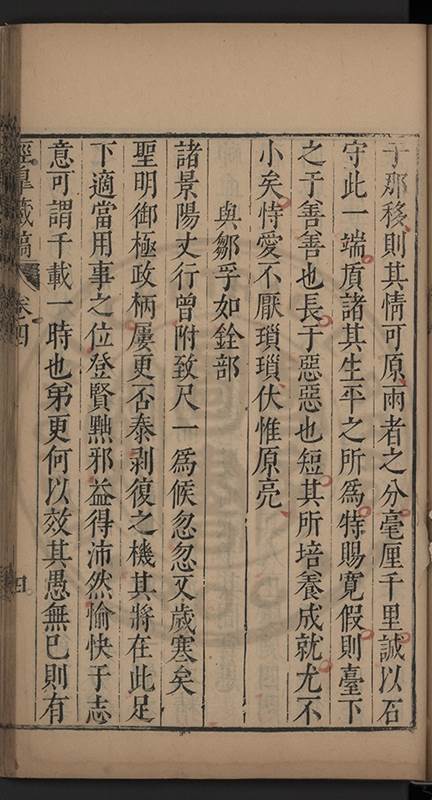 于那移則其情可原兩者之分毫厘千里誠以石
守此一端頂諸其生平之所為特賜寬假則臺下
之于善善也長于惡惡也短其所培養成就尤不
小矣恃愛不厭瑣瑣伏惟原亮
與鄒孚如銓部
諸景陽丈行曾附致尺一為候忽忽又歲寒矣
聖明御極政柄屢更否泰剥復之機其將在此足
下適當用事之位登賢黜邪益得沛然愉快于志
意可謂千載一時也弟更何以效其愚無已則有
涇皋藏稿
卷四
四